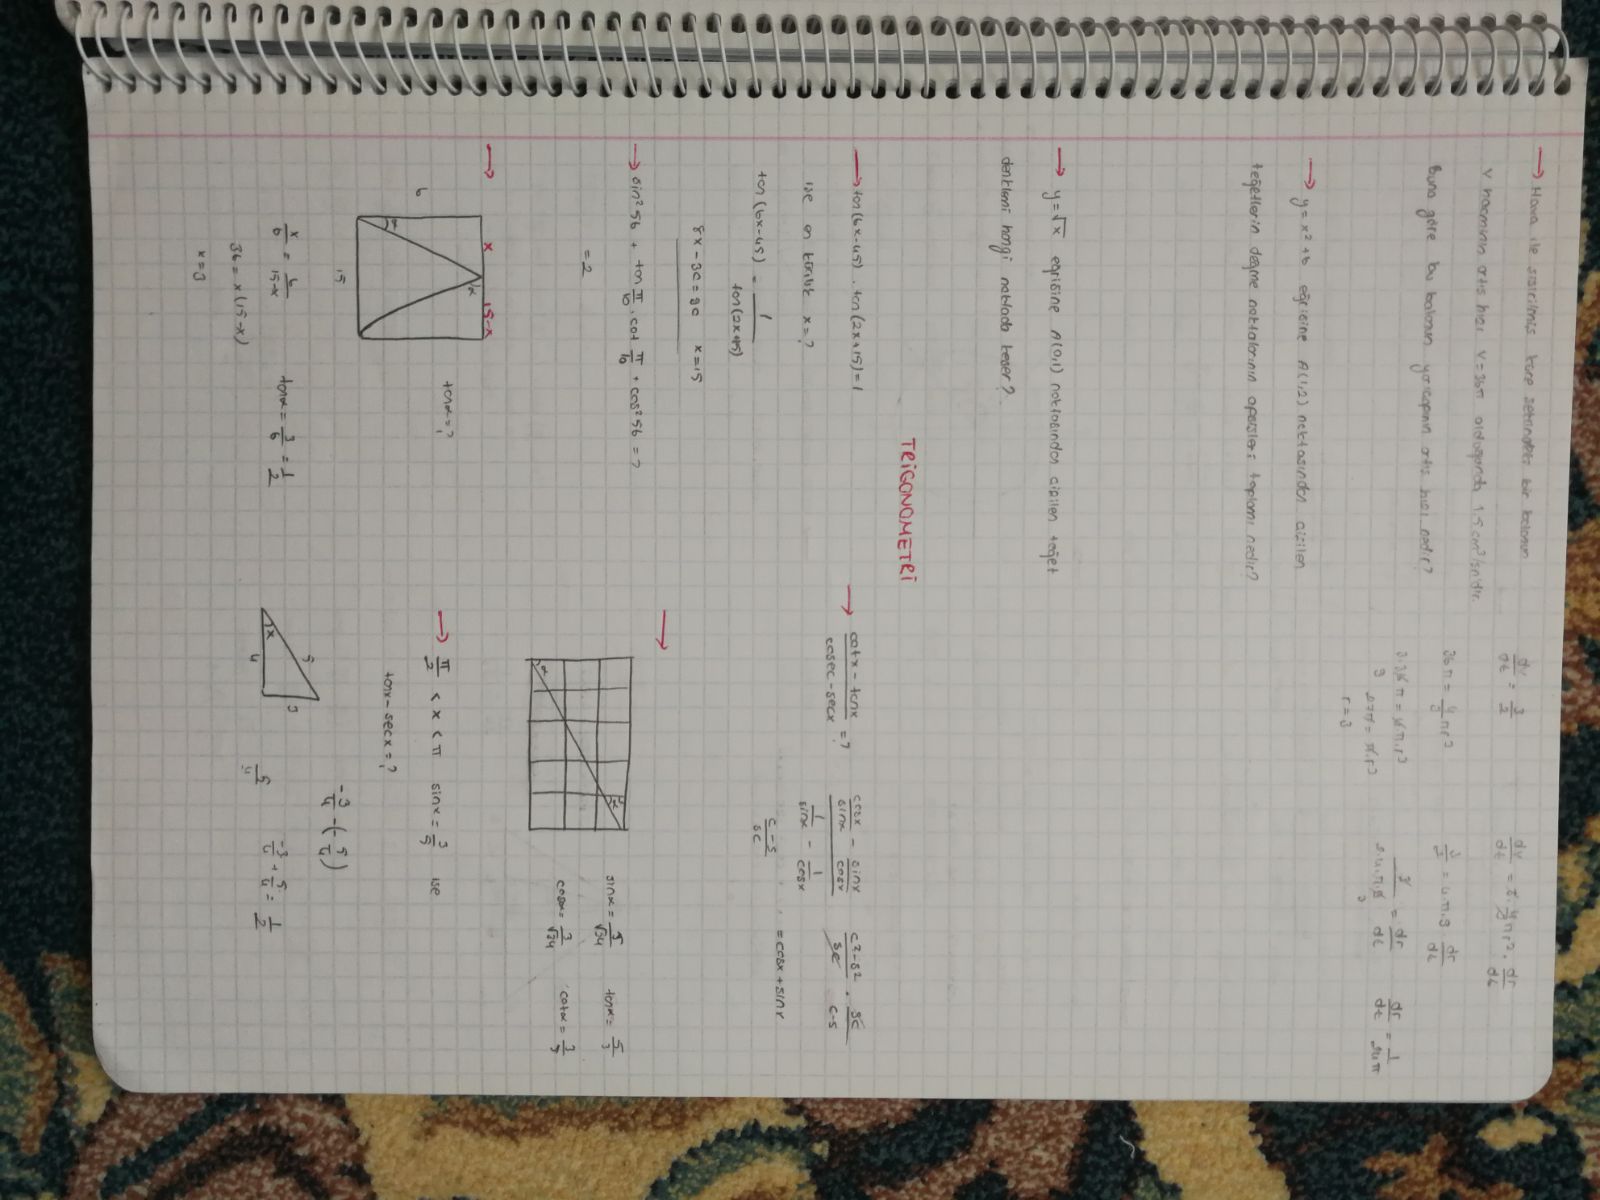 → Hava ile şişirilmiş küre şeklindeki bir balonun
V hacminin artış hızı V=36π olduğunda 1,5 cm³/sn'dir.
Buna göre bu balonun yarıçapının artış hızı nedir?
dv/dt = 3/2
36π = 4/3 πr³
3.36π = 4.π.r³
9
27π = π.r³
r = 3
dv/dt = 3.4/3 πr². dr/dt
3/2 = 4.π.9 dr/dt
3/2.4.π.9 = dr/dt
3
dr/dt = 1/24π
→ y = x² + 6 eğrisine A(1,2) noktasından çizilen
teğetlerin değme noktalarının apsisleri toplamı nedir?
→ y = √x eğrisine A(0,1) noktasından çizilen teğet
denklemi hangi noktada keser?
TRİGONOMETRİ
→ tan(6x-45) . tan(2x+15) = 1
ise en küçük x = ?
tan(6x-45) = 1/tan(2x+15)
8x - 30 = 90 x = 15
→ cotx - tanx / cosec - secx = ?
cosx/sinx - sinx/cosx
1/sinx - 1/cosx
c-s/sc
c²-s²/sc . sc/c-s
= cosx + sinx
→ sin²56 + tan π/10 . cot π/10 + cos²56 = ?
= 2
→
α
α
sinα = 5/√34 tanα = 5/3
cosα = 3/√34 cotα = 3/5
→
x 15-x
α
6
α
15
tanα = ?
x/6 = 6/15-x
36 = x(15-x)
x = 3
tanα = 3/6 = 1/2
→ π/2 < x < π sinx = 3/5 ise
tanx - secx = ?
-3/4 - (-5/4)
5
3
x
4
5/4
-3/4 + 5/4 = 1/2